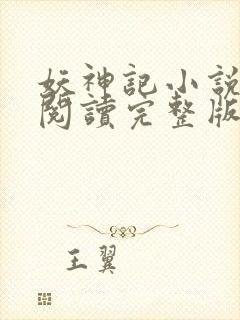 妖神記小說
閱讀完整版
王翼